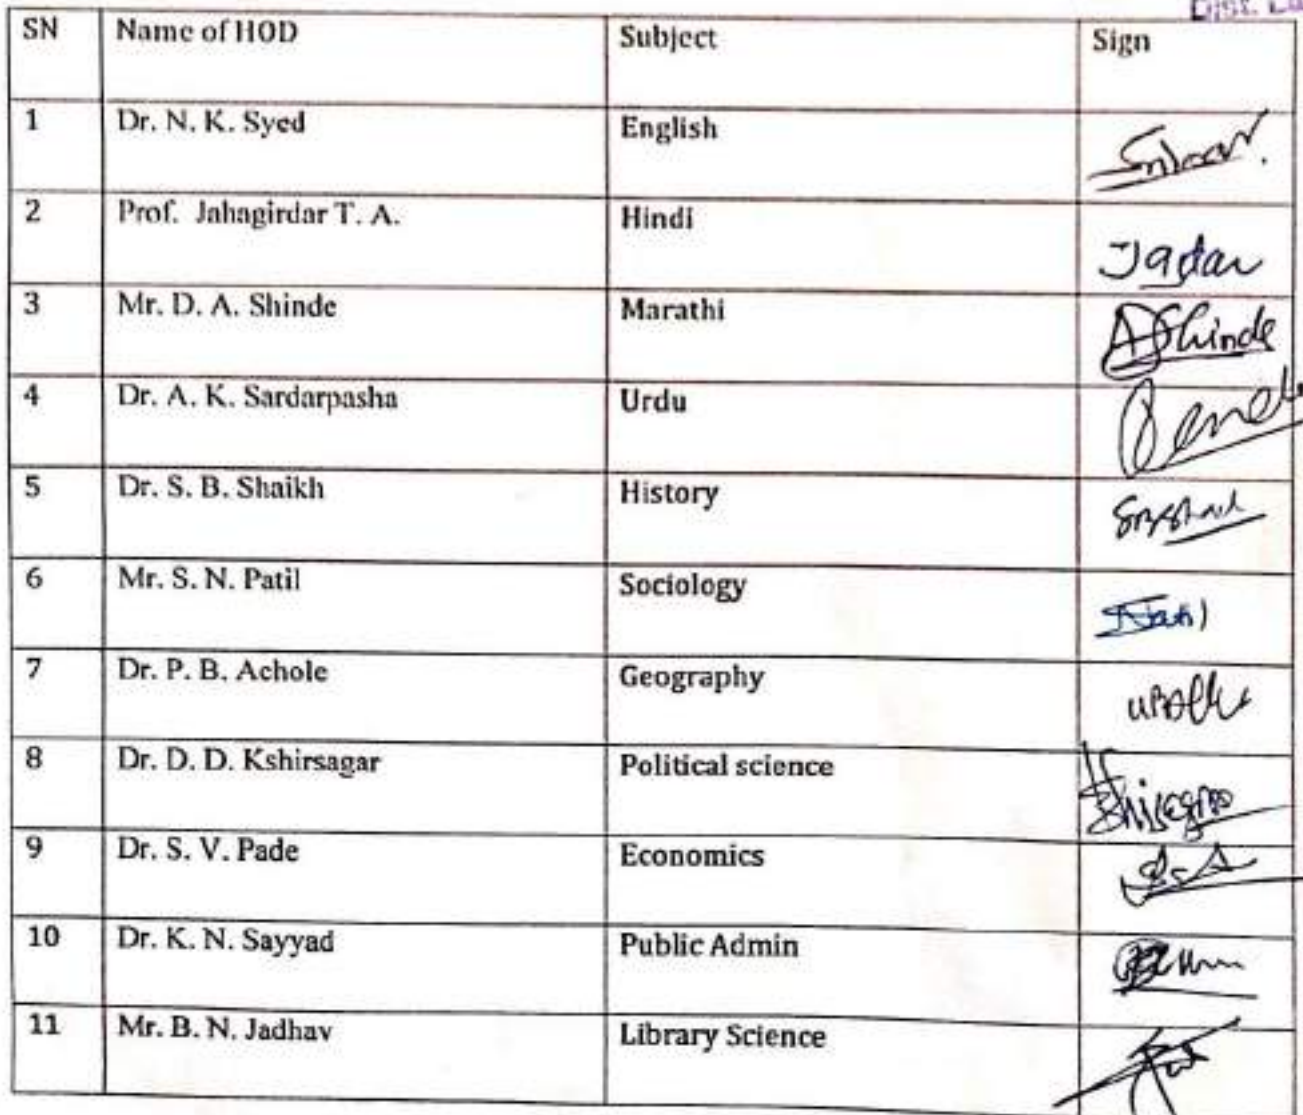 SN Name of HOD Subject Sign
1 Dr. N. K. Syed English
2 Prof. Jahagirdar T. A. Hindi
3 Mr. D. A. Shinde Marathi AShinde
4 Dr. A. K. Sardarpasha Urdu
5 Dr. S. B. Shaikh History
6 Mr. S. N. Patil Sociology
7 Dr. P. B. Achole Geography
8 Dr. D. D. Kshirsagar Political science
9 Dr. S. V. Pade Economics
10 Dr. K. N. Sayyad Public Admin
11 Mr. B. N. Jadhav Library Science